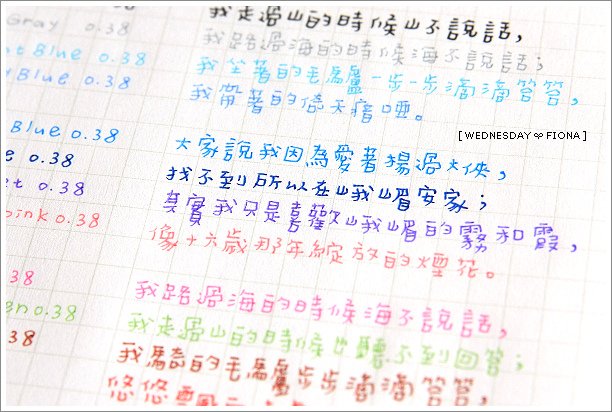 Gray 0.38
我走過山的時候山不說話，
我路過海的時候海不說話；
Blue 0.38
我坐著的毛驢一步一步滴滴答答，
Blue 0.38
我帶著的倚天喑啞。
[ WEDNESDAY ∞ FIONA ]
Blue 0.38
大家說我因為愛著楊過大俠，
0.38
找不到所以在峨嵋安家；
0.38
其實我只是喜歡峨嵋的霧和霞，
pink 0.38
像十六歲那年綻放的煙花。
0.38
我路過海的時候海不說話，
0.38
我走過山的時候也聽不到回答；
38
我騎的毛驢步步滴滴答答，
悠悠